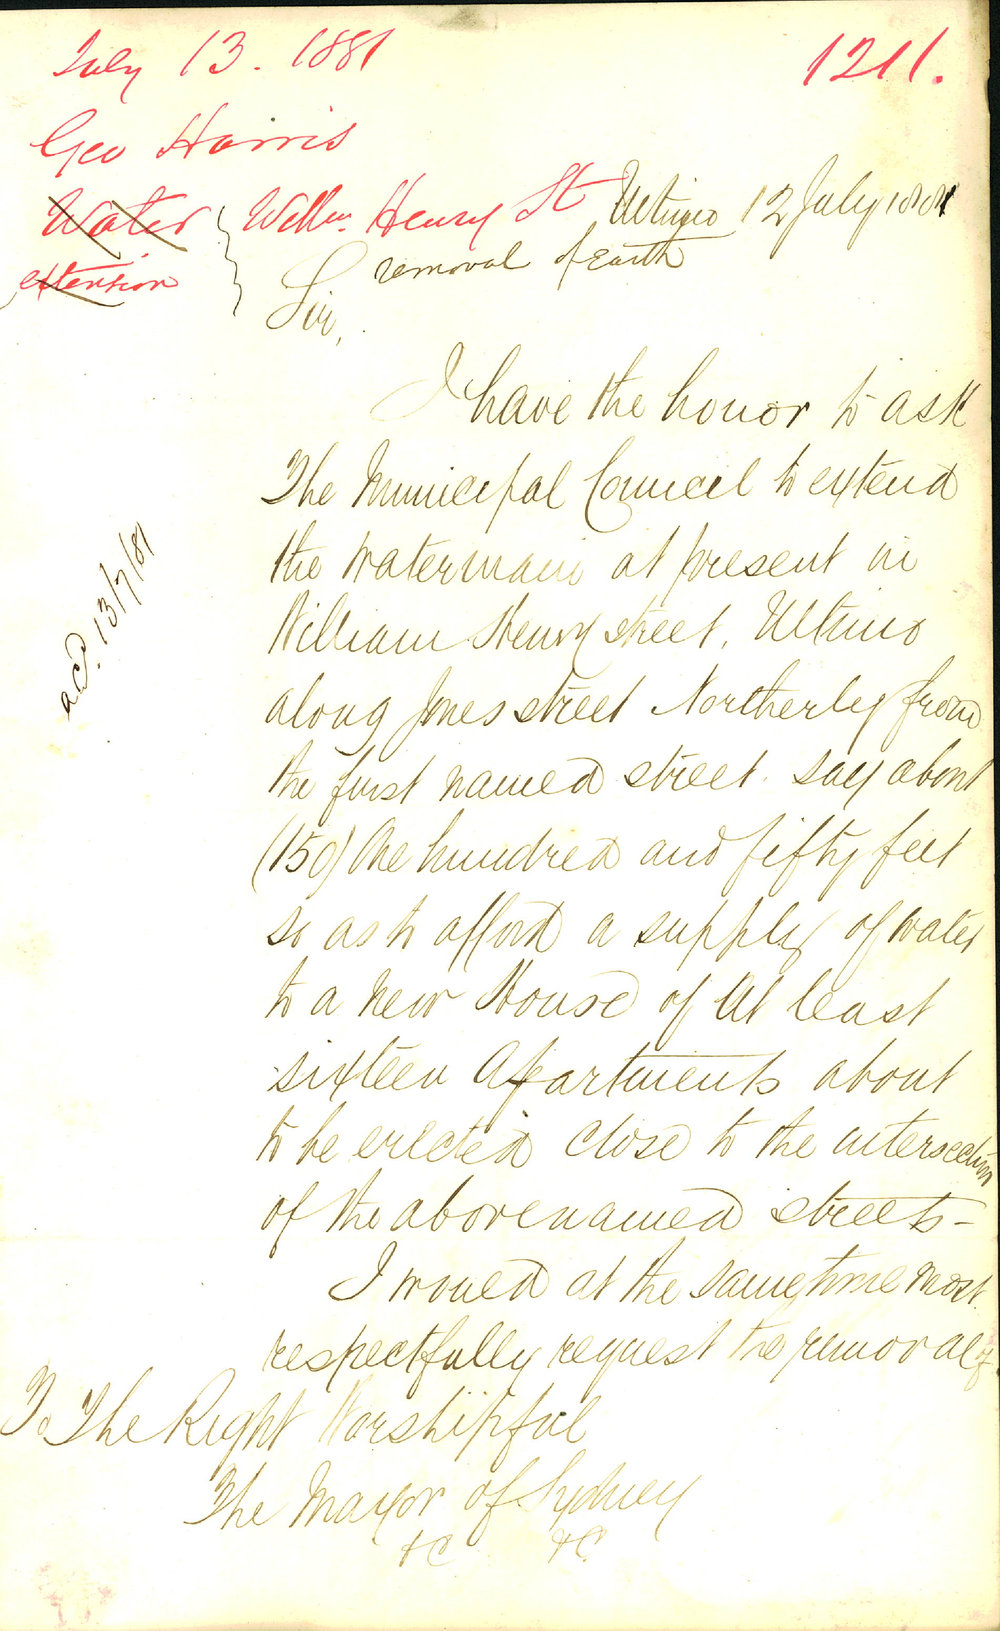 July 13. 1881
1211.
Geo Harris
Water } Willm. Henry St
extension
Ultimo 12 July 1881
removal of Earth
Sir,
I have the honor to ask
The Municipal Council to extend
the watermain at present in
William Henry street, Ultimo
along Jones street Northerly from
the first named street. say about
(150) One hundred and fifty feet
so as to afford a supply of water
to a new House of At least
sixteen Apartments about
to be erected close to the intersection
of the abovenamed streets -
I would at the sametime most
respectfully request the removal of
acd. 13/7/81
To The Right Worshipful
The Mayor of Sydney
&c &c